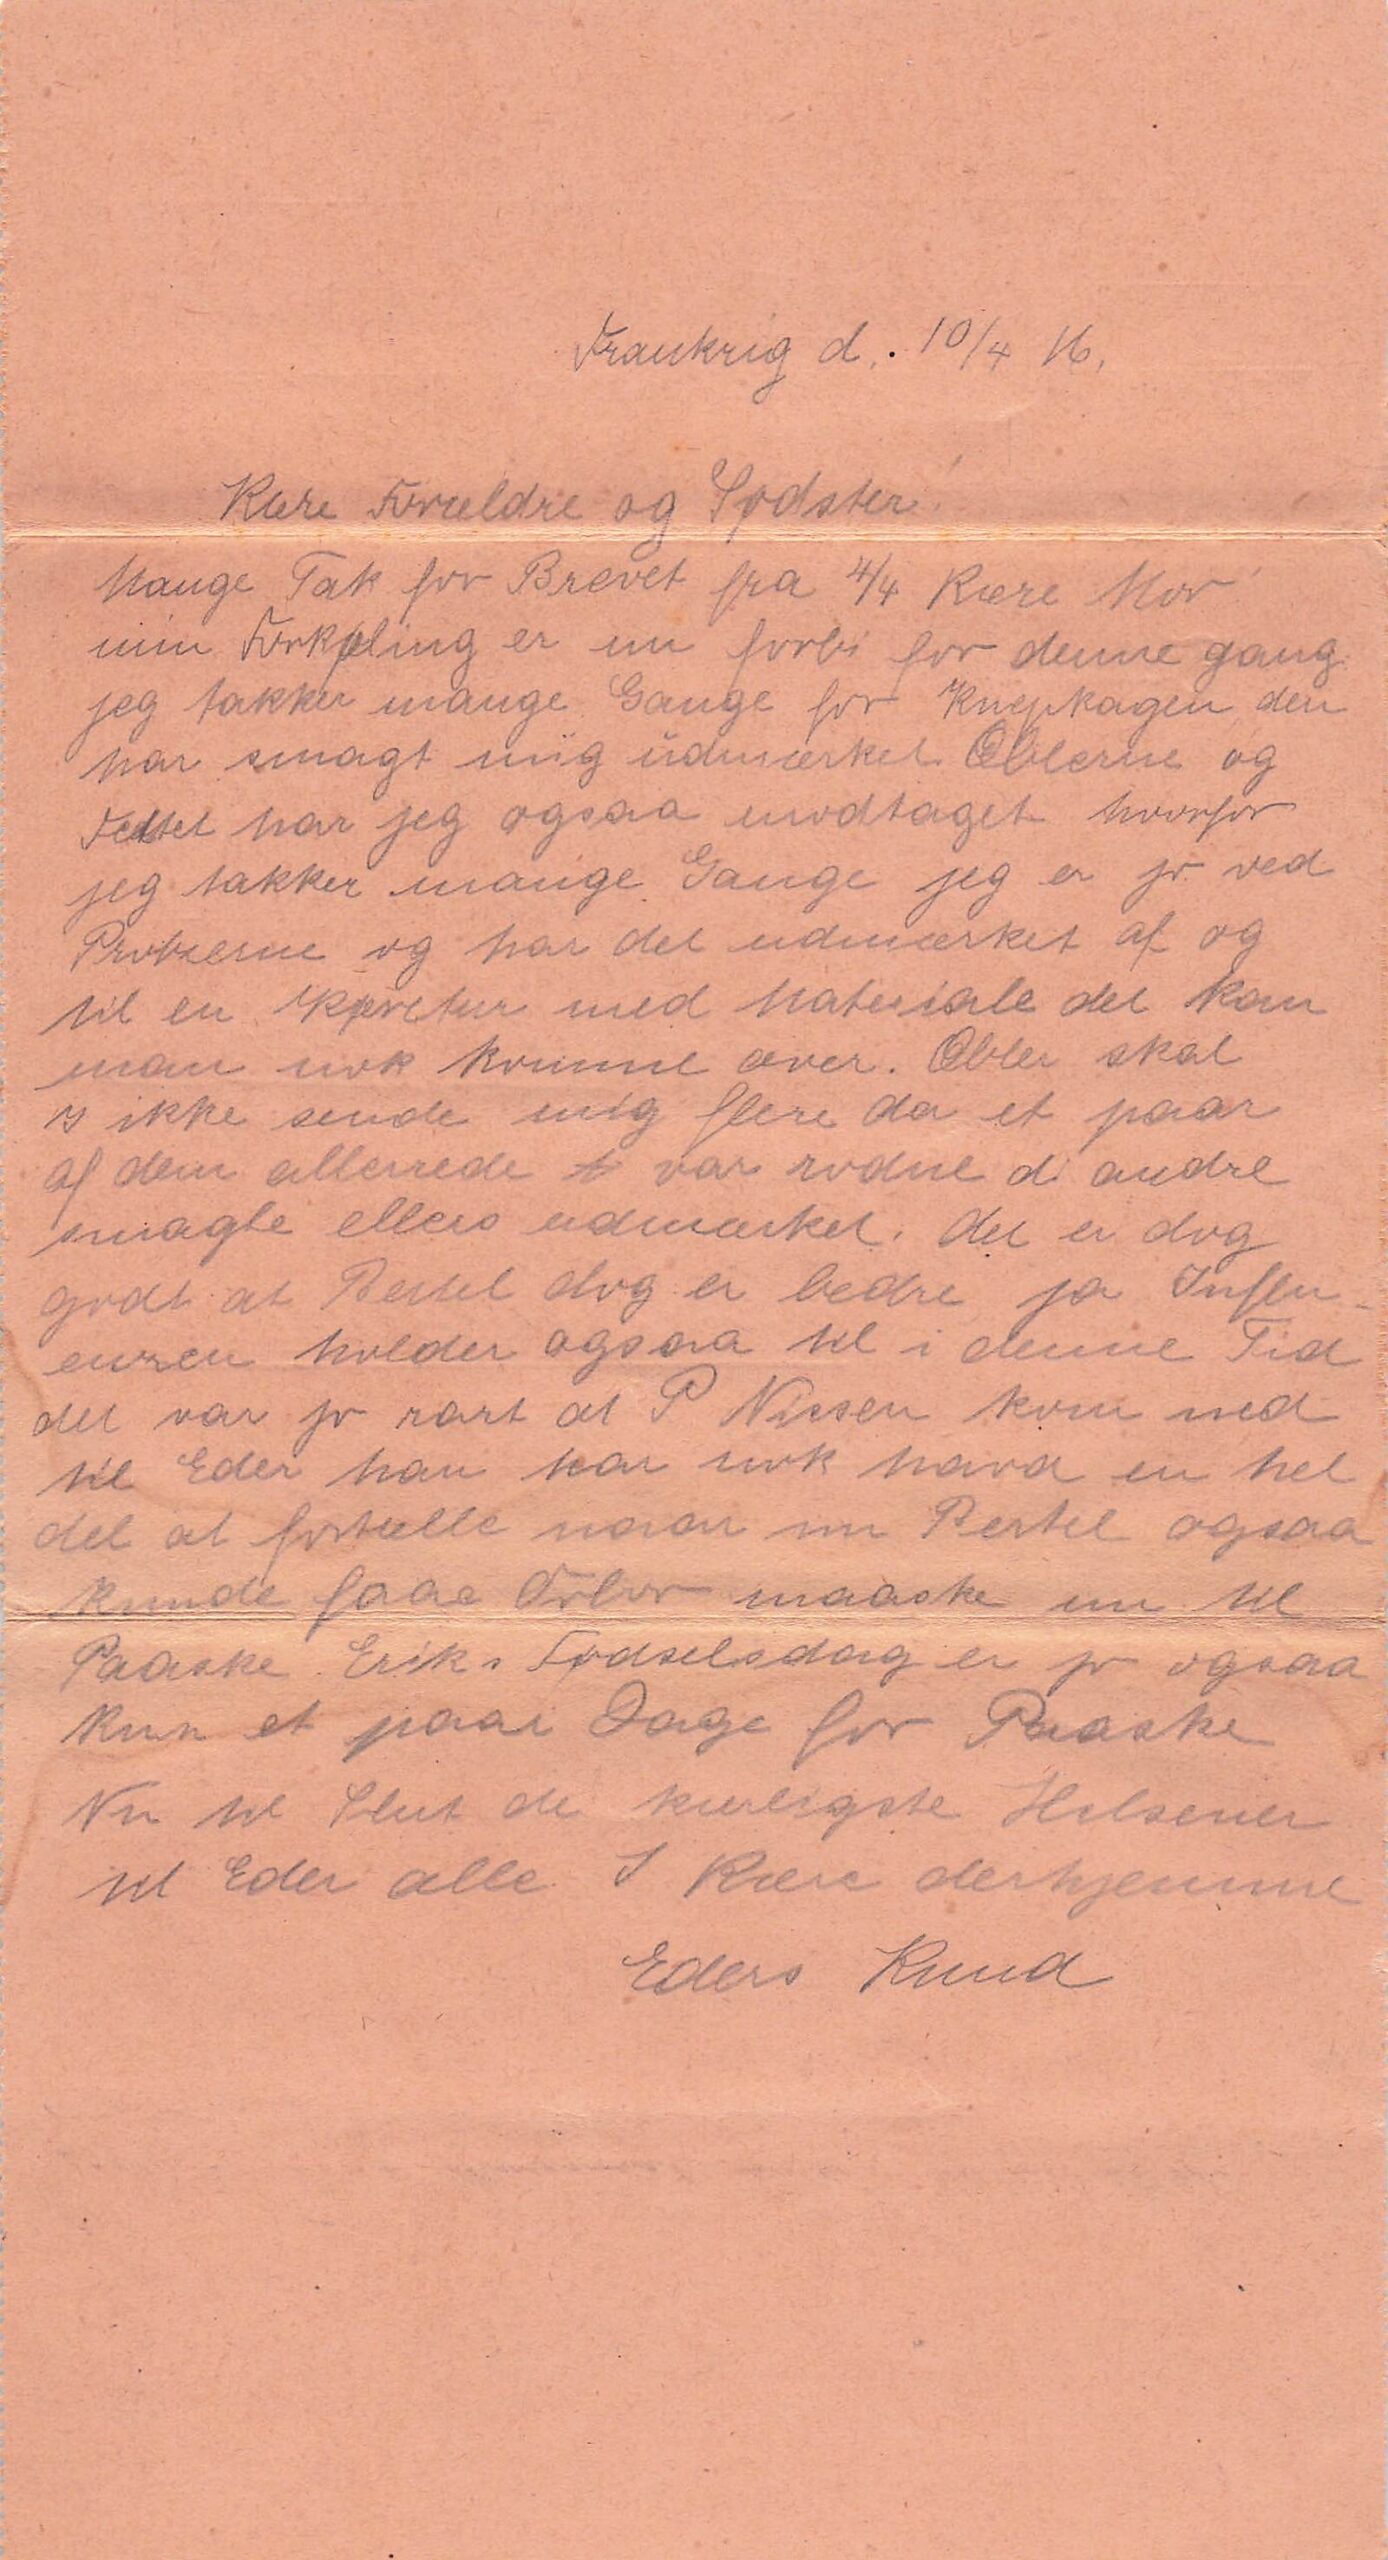 Frankrig d. 10/4 16.
Kære Forældre og Sødster!
Mange Tak for Brevet fra 4/4 Kære Mor!
min Forkøling er nu forbi for denne gang.
jeg takker mange Gange for Knepkagen den
har smagt mig üdmærket Æblerne og
Fedtet har jeg ogsaa modtaget hvorfor
jeg takker mange Gange jeg er jo ved
Protzerne og har det udmærket af og
til en Køretur med Materiale det kan
man nok komme over. Æbler skal
I ikke sende mig flere da et paar
af dem allerrede var rodne di andre
smagte ellers udmærket. Det er dog
godt at Bertel dog er bedre ja Influ-
enzen holder ogsaa til i denne Tid
det var jo rart at P Nissen kom ned
til Eder han har nok havd en hel
del at fortælle naar nu Bertel ogsaa
kunde faae Orlov maaske nu til
Paaske Eriks Fødselsdag er jo ogsaa
kun et paar Dage før Paaske
Nu til Slut de kærligste Hilsener
til Eder alle I Kære derhjemme
Eders Knud